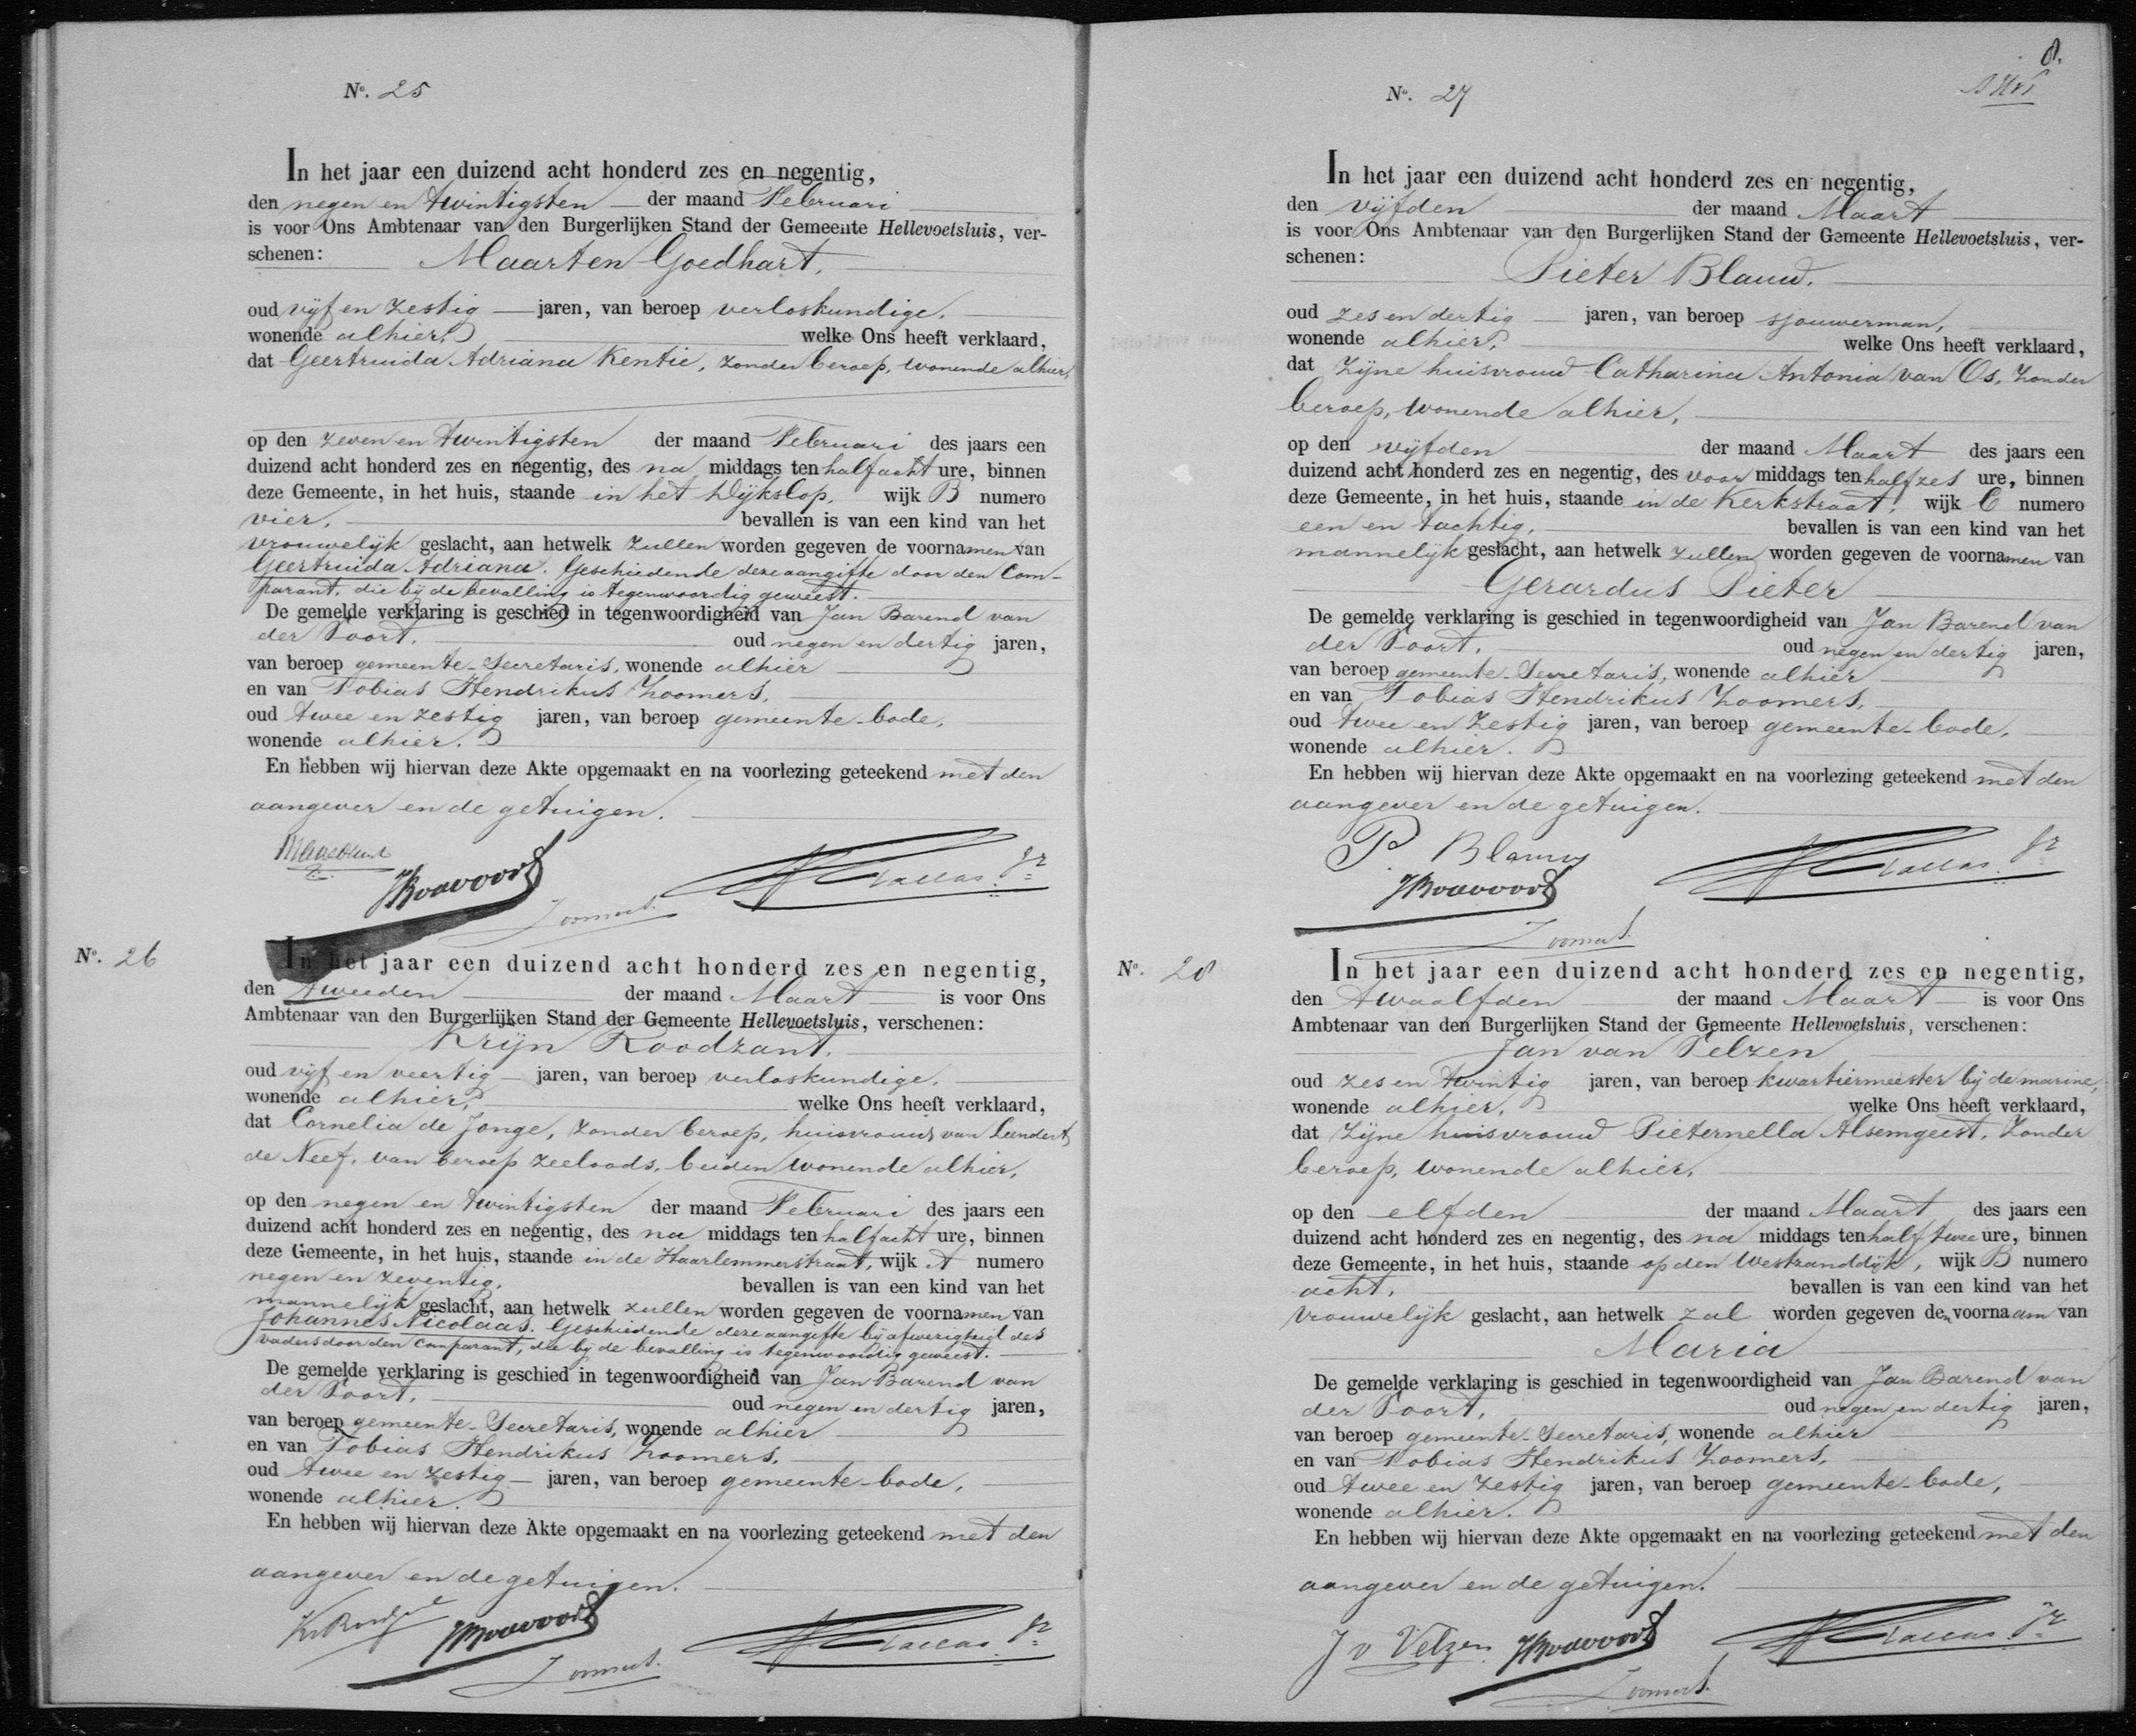 No. 25
In het jaar een duizend acht honderd zes en negentig,
den negen en twintigsten der maand Februari
is voor Ons Ambtenaar van den Burgerlijken Stand der Gemeente Hellevoetsluis, ver-
schenen: Maarten Goedhart,
oud vijf en zestig jaren, van beroep verloskundige,
wonende alhier, welke Ons heeft verklaard,
dat Geertruida Adriana Kentie, zonder beroep, wonende alhier,
op den zeven en twintigsten der maand Februari des jaars een
duizend acht honderd zes en negentig, des na middags ten half acht ure, binnen
deze Gemeente, in het huis, staande in het Dijkslop, wijk B numero
vier, bevallen is van een kind van het
vrouwelijk geslacht, aan hetwelk zullen worden gegeven de voornamen van
Geertruida Adriana. Geschiedende deze aangifte door den Com-
parant, die bij de bevalling is tegenwoordig geweest.
De gemelde verklaring is geschied in tegenwoordigheid van Jan Barend van
der Voort, oud negen en dertig jaren,
van beroep gemeente-Secretaris, wonende alhier
en van Tobias Hendrikus Zoomers,
oud twee en zestig jaren, van beroep gemeente-bode,
wonende alhier.
En hebben wij hiervan deze Akte opgemaakt en na voorlezing geteekend met den
aangever en de getuigen.
Zoomers.
No. 26
In het jaar een duizend acht honderd zes en negentig,
den tweeden der maand Maart is voor Ons
Ambtenaar van den Burgerlijken Stand der Gemeente Hellevoetsluis, verschenen:
Krijn Roodzant,
oud vijf en veertig jaren, van beroep verloskundige,
wonende alhier, welke Ons heeft verklaard,
dat Cornelia de Jonge, zonder beroep, huisvrouw van Leendert
de Neef, van beroep zeeloods, beiden wonende alhier,
op den negen en twintigsten der maand Februari des jaars een
duizend acht honderd zes en negentig, des na middags ten half acht ure, binnen
deze Gemeente, in het huis, staande in de Haarlemmerstraat, wijk A numero
negen en zeventig, bevallen is van een kind van het
mannelijk geslacht, aan hetwelk zullen worden gegeven de voornamen van
Johannes Nicolaas. Geschiedende deze aangifte bij afwezigheid des
vaders door den comparant, die bij de bevalling is tegenwoordig geweest.
De gemelde verklaring is geschied in tegenwoordigheid van Jan Barend van
der Voort, oud negen en dertig jaren,
van beroep gemeente-Secretaris, wonende alhier
en van Tobias Hendrikus Zoomers,
oud twee en zestig jaren, van beroep gemeente-bode,
wonende alhier.
En hebben wij hiervan deze Akte opgemaakt en na voorlezing geteekend met den
aangever en de getuigen.
Zoomers.
8.
No. 27
In het jaar een duizend acht honderd zes en negentig,
den vijfden der maand Maart
is voor Ons Ambtenaar van den Burgerlijken Stand der Gemeente Hellevoetsluis, ver-
schenen: Pieter Blauw,
oud zes en dertig jaren, van beroep sjouwerman,
wonende alhier, welke Ons heeft verklaard,
dat zijne huisvrouw Catharina Antonia van Os, zonder
beroep, wonende alhier,
op den vijfden der maand Maart des jaars een
duizend acht honderd zes en negentig, des voor middags ten half zes ure, binnen
deze Gemeente, in het huis, staande in de Kerkstraat, wijk C numero
een en tachtig, bevallen is van een kind van het
mannelijk geslacht, aan hetwelk zullen worden gegeven de voornamen van
Gerardus Pieter
De gemelde verklaring is geschied in tegenwoordigheid van Jan Barend van
der Voort, oud negen en dertig jaren,
van beroep gemeente-Secretaris, wonende alhier
en van Tobias Hendrikus Zoomers,
oud twee en zestig jaren, van beroep gemeente-bode,
wonende alhier.
En hebben wij hiervan deze Akte opgemaakt en na voorlezing geteekend met den
aangever en de getuigen.
P. Blauw
Zoomers.
No. 28
In het jaar een duizend acht honderd zes en negentig,
den twaalfden der maand Maart is voor Ons
Ambtenaar van den Burgerlijken Stand der Gemeente Hellevoetsluis, verschenen:
Jan van Velzen
oud zes en twintig jaren, van beroep kwartiermeester bij de marine,
wonende alhier, welke Ons heeft verklaard,
dat zijne huisvrouw Pieternella Alsemgeest, zonder
beroep, wonende alhier,
op den elfden der maand Maart des jaars een
duizend acht honderd zes en negentig, des na middags ten half twee ure, binnen
deze Gemeente, in het huis, staande op den Westzanddijk, wijk B numero
acht, bevallen is van een kind van het
vrouwelijk geslacht, aan hetwelk zal worden gegeven den voornaam van
Maria
De gemelde verklaring is geschied in tegenwoordigheid van Jan Barend van
der Voort, oud negen en dertig jaren,
van beroep gemeente-Secretaris, wonende alhier
en van Tobias Hendrikus Zoomers,
oud twee en zestig jaren, van beroep gemeente-bode,
wonende alhier.
En hebben wij hiervan deze Akte opgemaakt en na voorlezing geteekend met den
aangever en de getuigen.
J v Velzen
Zoomers.